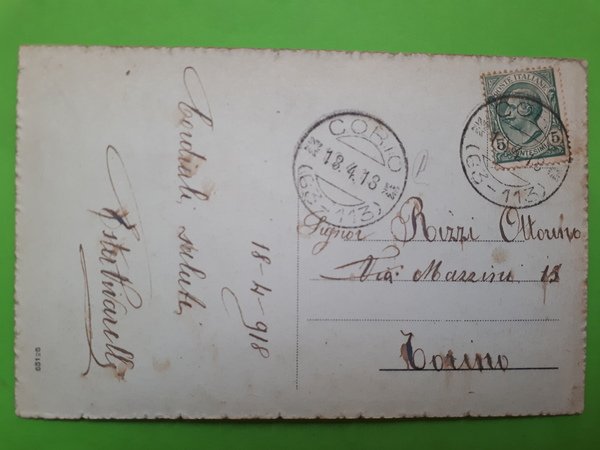 Cordiali saluti
18-4-918
CORIO
18.4.18
(63-113)
POSTE ITALIANE
5 CENTESIMI 5
(63-113)
Signor Rizzi Ottorino
Via Mazzini 13
Torino